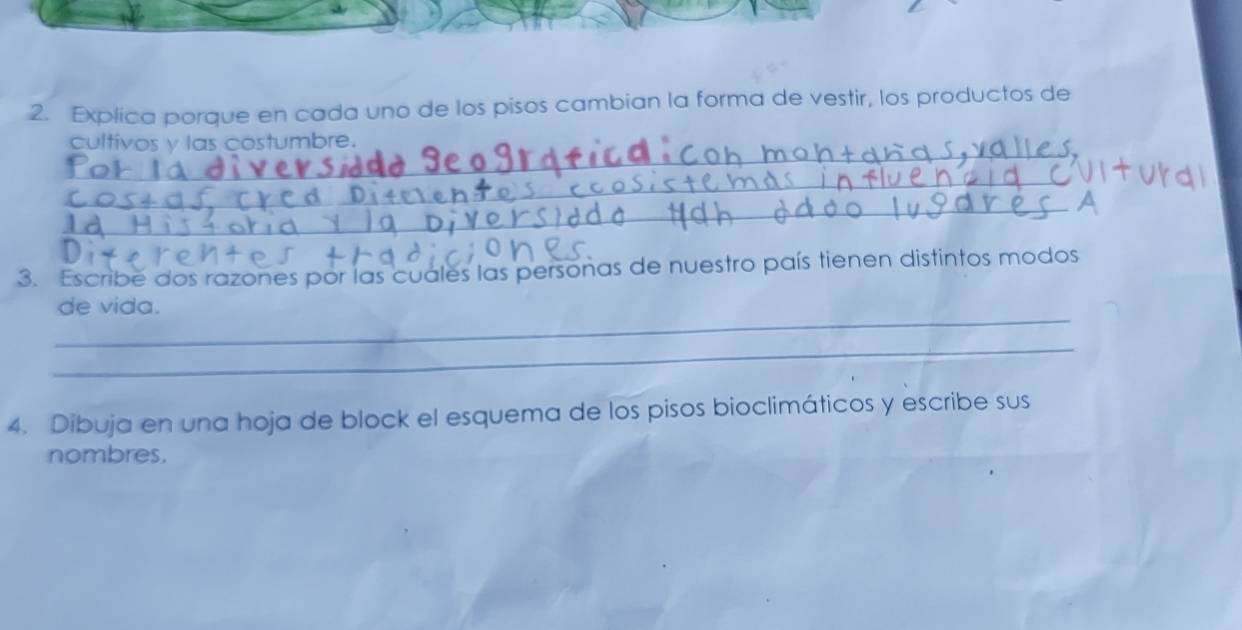 2. Explica porque en cada uno de los pisos cambian la forma de vestir, los productos de
cultivos y las costumbre.
Por la diversidad geografica: con montañas, valles,
costas, crea Diferentes ecosistemas influencia cultural
la Historia y la Diversidad Han dado lugares A
Diferentes tradiciones.
3. Escribe dos razones por las cuáles las personas de nuestro país tienen distintos modos
de vida.
4. Dibuja en una hoja de block el esquema de los pisos bioclimáticos y escribe sus
nombres.